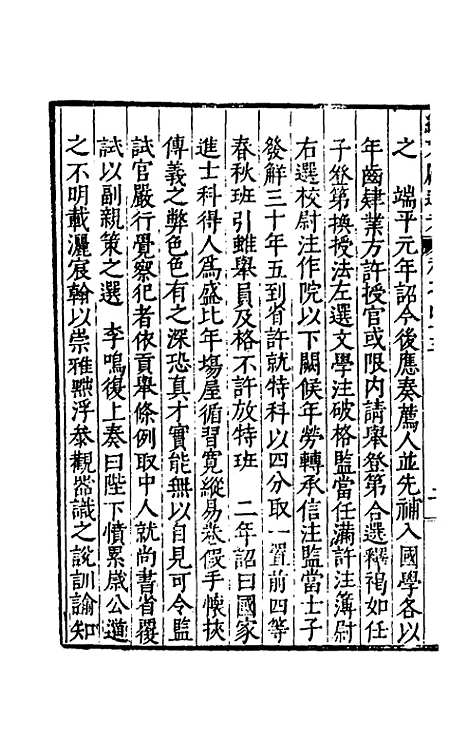 之　端平元年詔今後應奏薦人並先補入國學各以
年齒肄業方許授官或限内請舉登第合選釋褐如任
子登第換授法左選文學注破格監當任滿許注簿尉
右選校尉注作院以下闕候年勞轉承信注監當士子
發解三十年五到省許就特科以四分取一置前四等
春秋班引雖舉員及格不許放特班　二年詔曰國家
進士科得人爲盛比年場屋循習寛縱易卷假手懐挾
傳義之弊色色有之深恐真才實能無以自見可令監
試官嚴行覺察犯者依貢舉條例取中人就尚書省覆
試以副親策之選　李鳴復上奏曰陛下憤累歲公道
之不明載灑宸翰以崇雅黜浮叅觀器識之説訓諭知